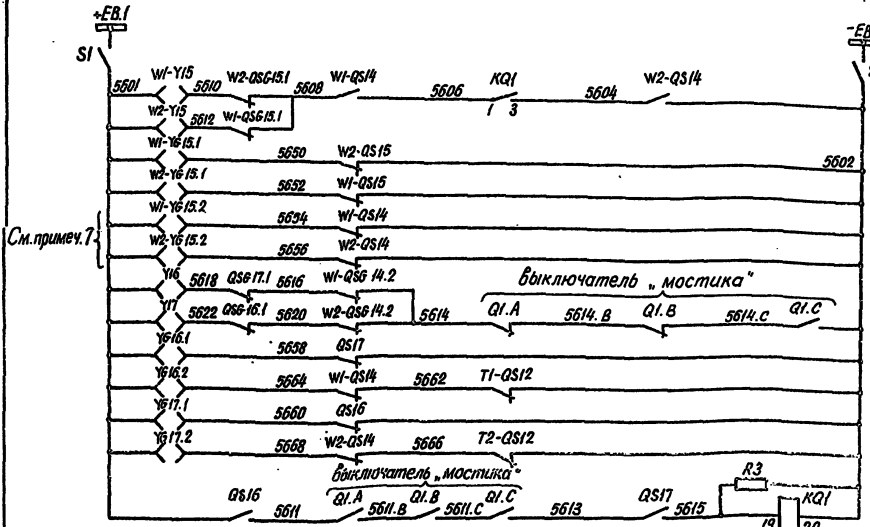 +ЕВ.1
-ЕВ
S1
5601 W1-Y15 5610 W2-QSG15.1 5608 W1-QS14 5606 KQ1 1 3 5604 W2-QS14
W2-Y15 5612 W1-QSG15.1
W1-YG15.1 5650 W2-QS15 5602
W2-YG15.1 5652 W1-QS15
W1-YG15.2 5654 W1-QS14
См. примеч. 7
W2-YG15.2 5656 W2-QS14
Выключатель „мостика"
Y16 5618 QSG17.1 5616 W1-QSG14.2
Y17 5622 QSG16.1 5620 W2-QSG14.2 5614 Q1.A 5614.B Q1.B 5614.C Q1.C
YG16.1 5658 QS17
YG16.2 5664 W1-QS14 5662 T1-QS12
YG17.1 5660 QS16
YG17.2 5668 W2-QS14 5666 T2-QS12
Выключатель „мостика"
R3
QS16 5611 Q1.A 5611.B Q1.B 5611.C Q1.C 5613 QS17 5615 KQ1
19 20